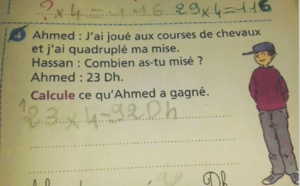 ? x 4 = 116 29 x 4 = 116
Ahmed : J'ai joué aux courses de chevaux
et j'ai quadruplé ma mise.
Hassan : Combien as-tu misé ?
Ahmed : 23 Dh.
Calcule ce qu'Ahmed a gagné.
23 x 4 = 92 Dh
Dh